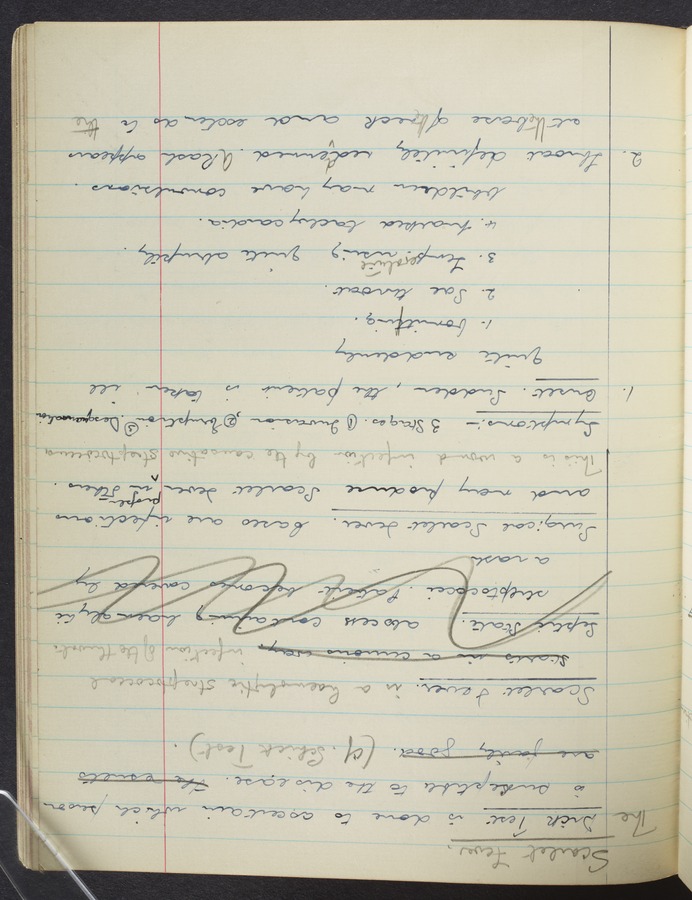 Scarlet Fever.
The Dick Test is done to ascertain which person
is suseptable to the disease. The results
are fairly good. (cf. Schick Test).
Scarlet Fever. is a haemolytic streptococcal
Starts in a curious way infection of the throat.
Septic State. abscess containing haemolytic
streptococci. Patient becomes covered by
a rash
Surgical Scarlet Fever. Cases are infections
and may produce Scarlet Fever proper in others.
This is a wound infection by the causative streptococcus
Symptoms:- 3 Stages. ① Invasion ② Eruption. ③ Desquamation
1. Onset. Sudden, the patient is taken ill
quite suddenly
1. Vomitting.
2. Sore throat.
3. Temperature rising quite abruptly.
4. Marked tachycardia.
Children may have convulsions.
2. Throat definitely reddened. Rash appears
at the base of neck and extends to the